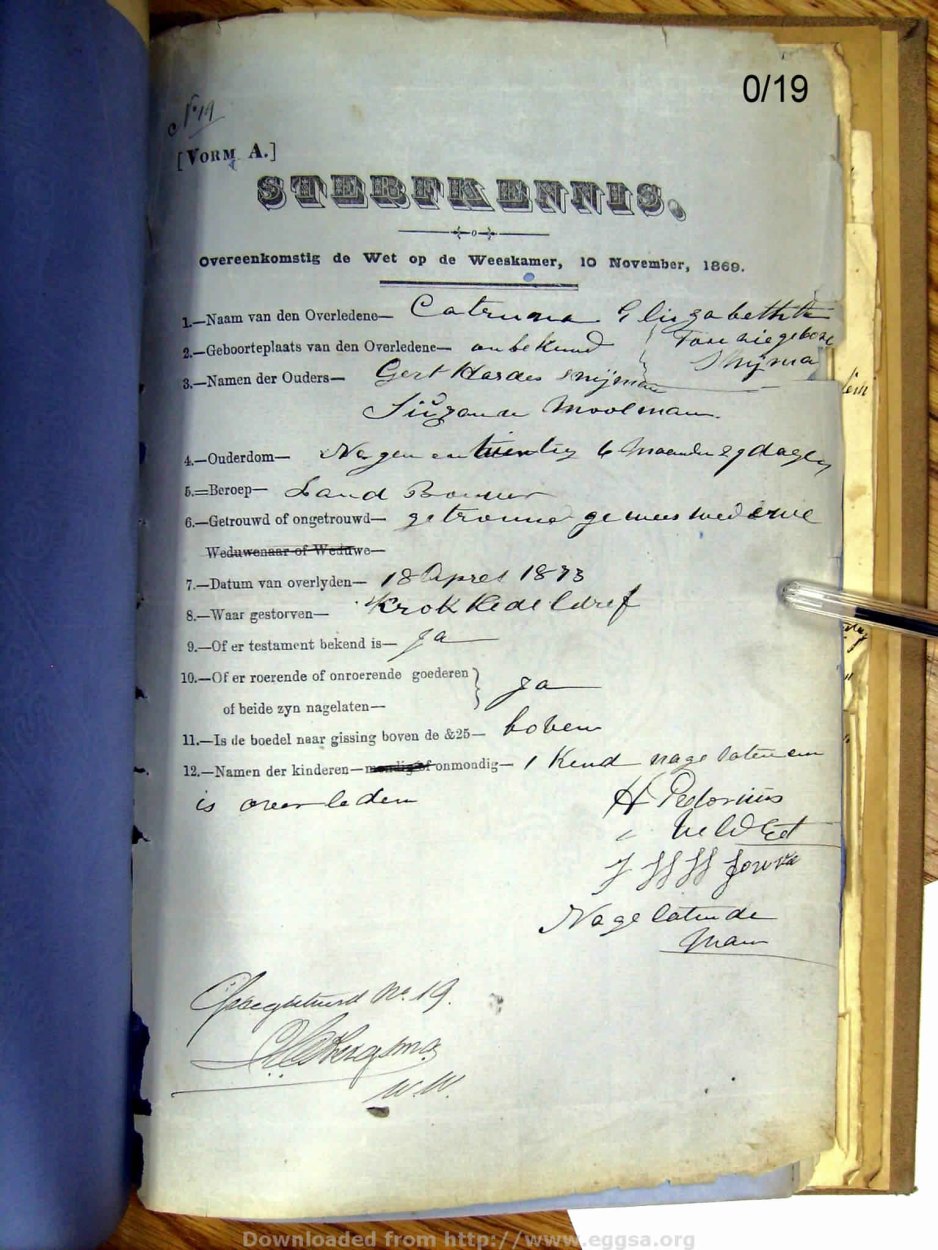 0/19
No 19
[VORM A.]
STERFKENNIS.
Overeenkomstig de Wet op de Weeskamer, 10 November, 1869.
1.—Naam van den Overledene— Catriena Elizabeth
2.—Geboorteplaats van den Overledene— onbekend
3.—Namen der Ouders— Gert Snijman
Moolman
4.—Ouderdom— Negen en twintig 6 Maanden 29 dagen
5.—Beroep— Land Bouwer
6.—Getrouwd of ongetrouwd— getrouwd gewees
Weduwenaar of Weduwe—
7.—Datum van overlyden— 18 April 1873
8.—Waar gestorven—
9.—Of er testament bekend is— Ja
10.—Of er roerende of onroerende goederen
of beide zyn nagelaten— Ja
11.—Is de boedel naar gissing boven de &25— boven
12.—Namen der kinderen—mondig of onmondig— 1 Kend nage laten en
is over leden
H Pretorius
Veld
Nage latende
Man
No. 19.
W.W.
Downloaded from http://www.eggsa.org